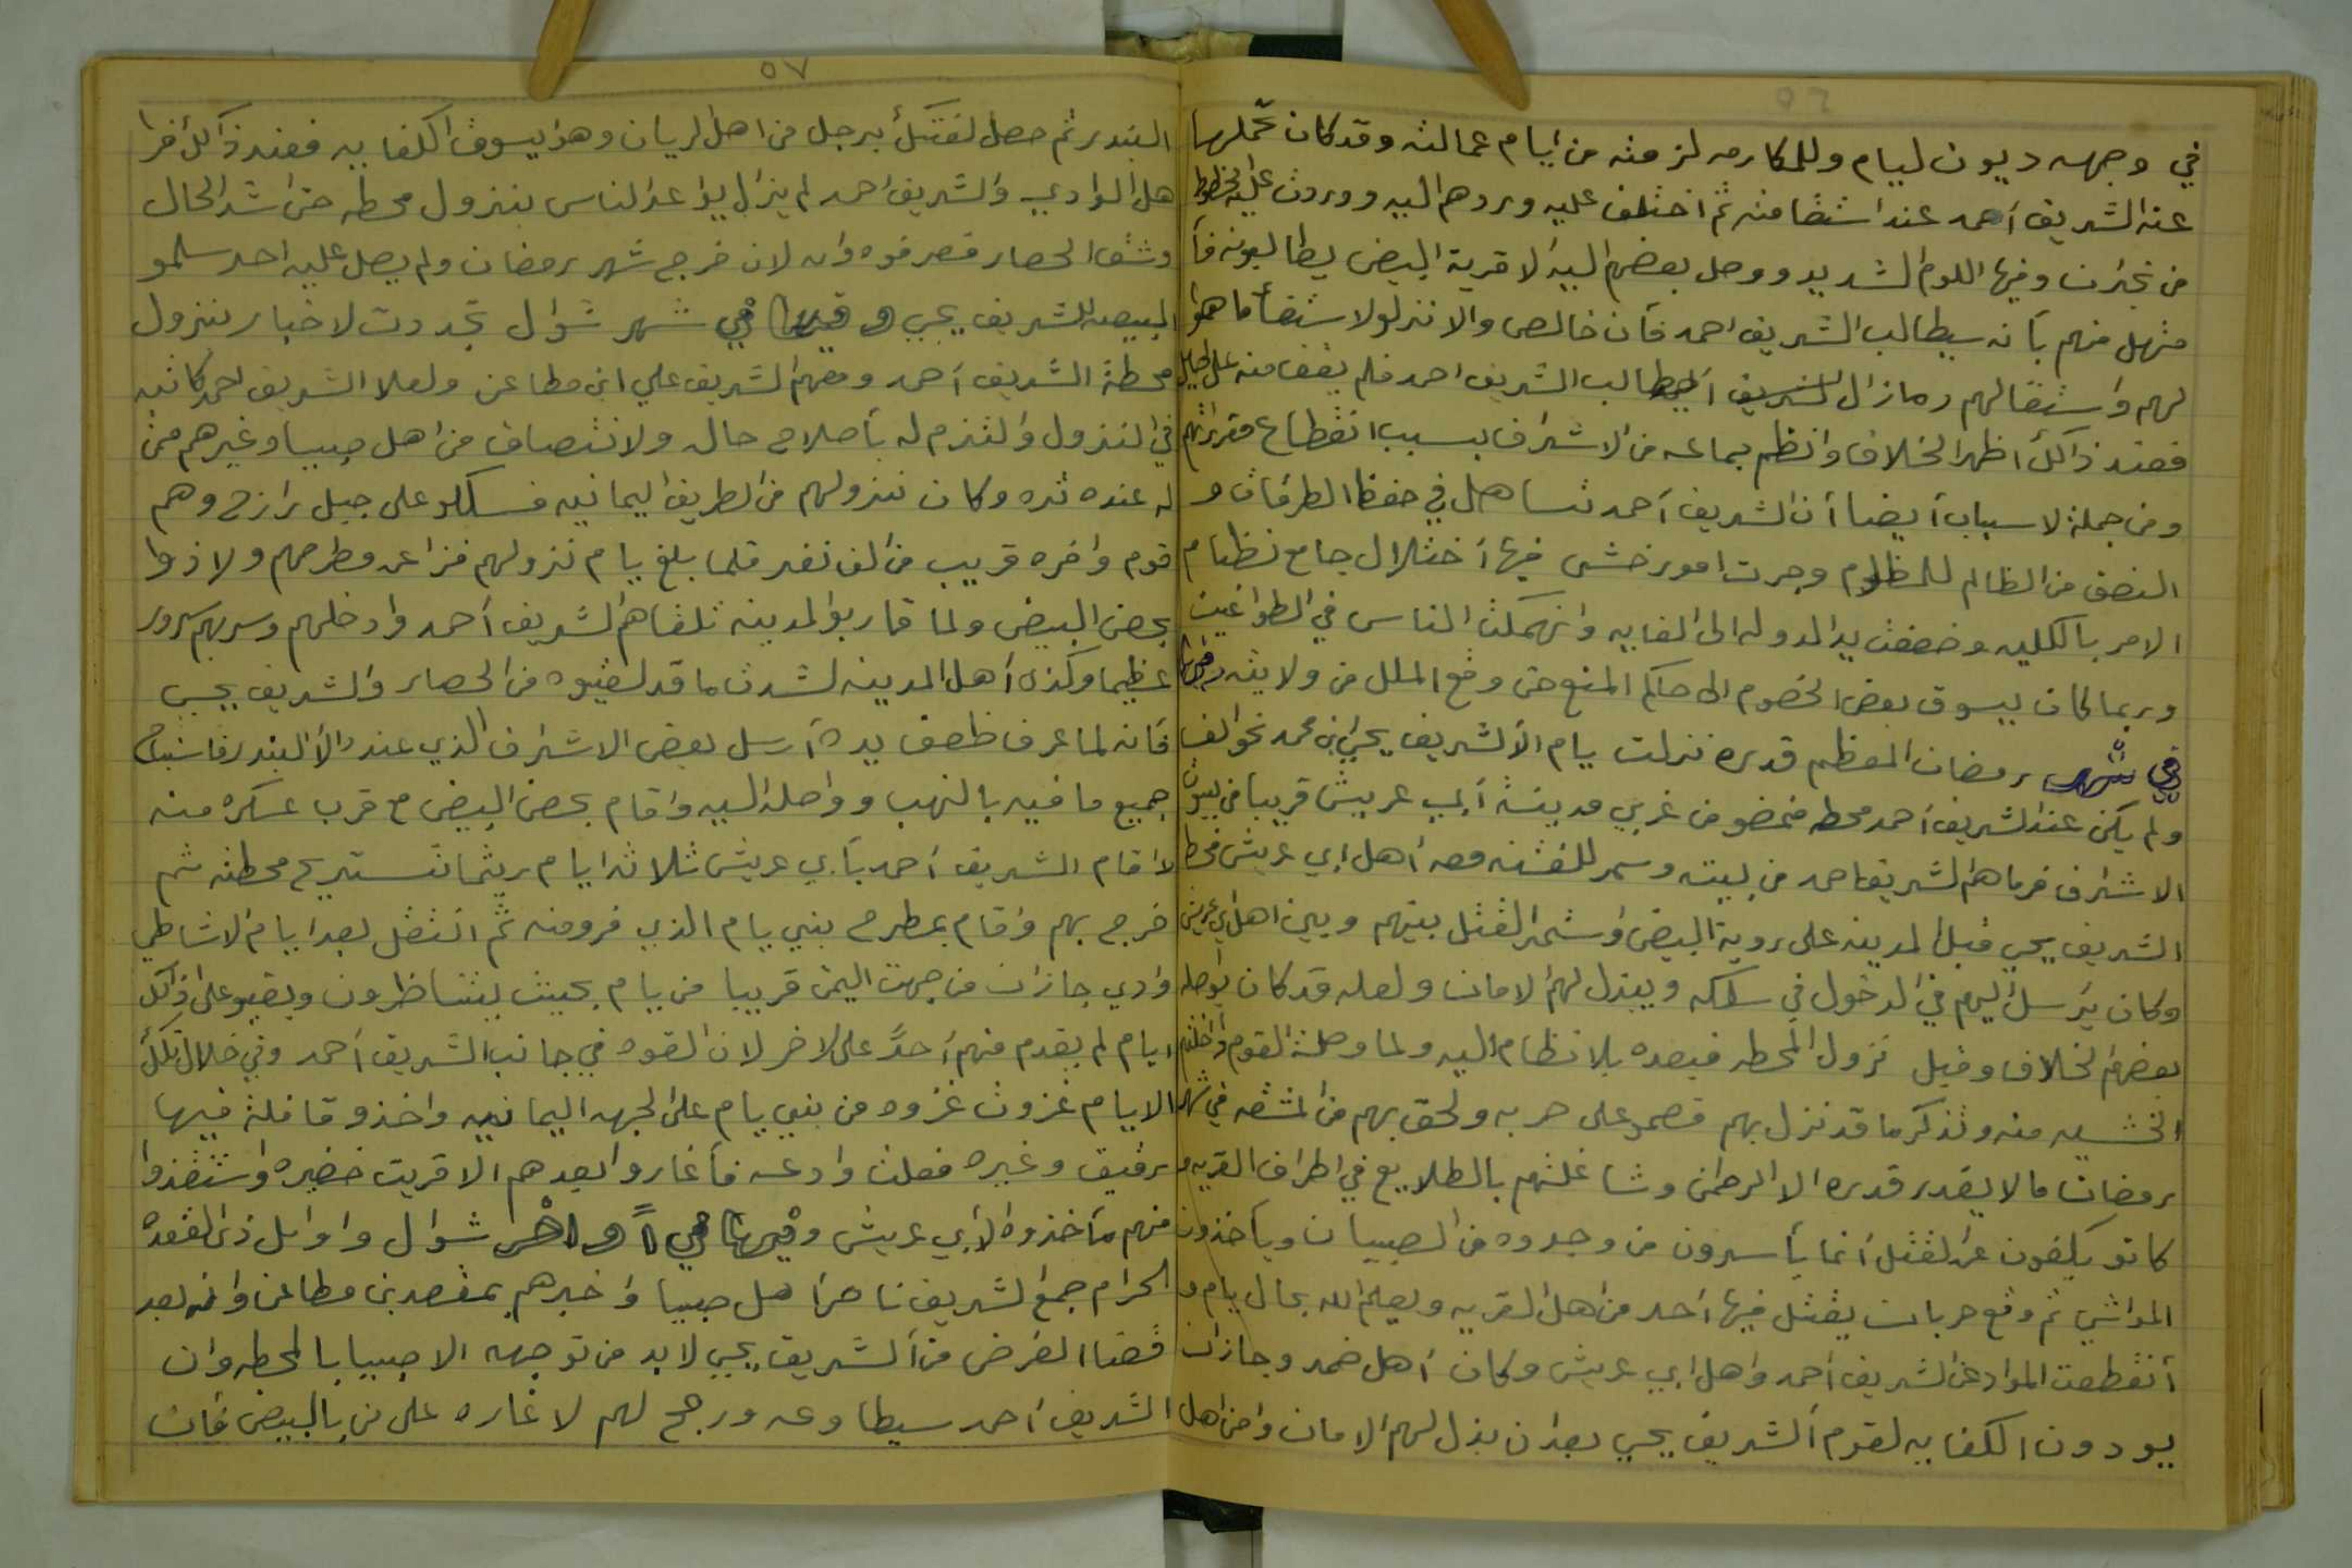 ٥٦
في وجهه ديون ليام وللمكارمه لزمته من ايام عمالته وقد كان تحملها
عنه الشريف أحمد عند اشتضا منه ثم اختلف عليه وردهم اليه ووردت عليه الخطوط
من نجران وفيها اللوم الشديد ووصل بعضهم اليه الا قرية البيض يطالبونه فأ
متهل منهم بأنه سيطالب الشريف احمد فأن خالص والا نزلو لاستقضأ ما هو
لهم واستقالهم ومازال يطالب الشريف احمد فلم يقف منه على طايل
فعند ذالك أظهر الخلاف وانظم جماعه من الاشراف بسبب انقطاع مقرراتهم
ومن جملة لاسباب أيضا أن الشريف أحمد تساهل في حفظ الطرقات و
النصف من الظالم للمظلوم وجرت امور خشي فيها أختلال جامع نظام
الامر بالكليه وضعفت يد الدوله الى الغايه وانهمكت الناس في الطواغيت
وربما كان يسوق بعض الخصوم الى حاكم المنع حتى وقع الملل من ولايته وفيها
في شهر رمضان المعظم قدره نزلت يام الا الشريف يحي ابن محمد نحو الف
ولم يكن عند الشريف أحمد محطه فنمضو من غربي مدينة أبي عريش قريبا من بيوت
الاشراف فرماهم الشريف احمد من بيته وسمر للفتنه معه أهل ابي عريش فحط
الشريف يحي قبل المدينه على روية البيض واستمر القتل بينهم وبين اهل ابي عريش
وكان يرسل اليهم في الدخول في سلكه ويبذل لهم الامان ولعله قد كان يواصله
بعضهم لخلاف وقبل نزول المحطه فيعده بلانظام اليه ولما وصلة القوم وأخلتهم
الخشيه منه وتذكر ما قد نزل بهم فصمو على حربه ولحق بهم من المشقه في شهر
رمضان مالا يقدر قدره الا الرحمن وشاغلتهم بالطلايع في اطراف القريه و
كانو يكفون عن القتل أنما يأسرون من وجدوه من الصبيان ويأخذون
المواشي ثم وقع حربات يقتل فيها أحد من اهل القريه ويعلم الله بحال يام و
أنقطعت المواد عن الشريف أحمد واهل ابي عريش وكان أهل ضمد وجازان
يودون الكفايه لقوم الشريف يحي بعد ان بذل لهم الامان وامن اهل
٥٧
البندر ثم حصل لفتك برجل من اهل الريان وهو يسوق الكفايه فعند ذالك أفرا
هل الوادي والشريف احمد لم يزل يواعد الناس بنزول محطه حتى اشتد الحال
وشق الحصار فصرفوه وانه لان خرج شهر رمضان ولم يصل عليه احد سلمو
البيعه للشريف يحي وفيها في شهر شوال تجددت لاخبار بنزول
محطة الشريف أحمد ومعهم الشريف علي ابن مطاعن ولعلا الشريف احمد كاتبه
في النزول والتزم له بأصلاح حاله ولانتصاف من اهل صبيا وغيرهم ممن
له عنده ثره وكان نزولهم من الطريق اليمانيه فسلكو على جبل رازح وهم
قوم وافره قريب من الف نفر فلما بلغ يام نزولهم فزاعن مطرحهم ولاذوا
بحصن البيض ولما قاربو المدينه تلقاهم الشريف أحمد وادخلهم وسر بهم سرور
عظيما وكذى أهل المدينه لشدت ما قد لقيوه من الحصار والشريف يحيى
فأنه لما عرف ظعف يده أرسل بعض الاشراف الذي عنده الا البندر فاستباح
جميع ما فيه بالنهب وواصله اليه واقام بحصن البيض مع قرب عسكره منه
لا اقام الشريف أحمد بأبي عريش ثلاثه ايام ريثما تستريح محطته ثم
خرج بهم واقام بمطرح بني يام الذي فرو منه ثم انتقل بعد ايام لاشاطي
وادي جازان من جهت اليمن قريبا من يام بحيث يتناظرون وبقيو على ذالك
ايام لم يقدم منهم أحدً على لاخر لان القوه في جانب الشريف أحمد وفي خلال تلك
الايام غزوت غزوه من بني يام على الجهه اليمانيه واخذو قافلة فيها
رقيق وغيره فعلن وادعه فأغاروا بعدهم الا قريت خضيره واستنقذوا
منهم مأخذوه لابي عريش وفيها في أواخر شوال واوايل ذى القعده
الحرام جمع الشريف ناصر اهل صبيا واخبرهم بمقصد بن مطاعن وانه بعد
قضا الغرض من الشريف يحي لابد من توجهه الا صبيا بالمحطه وان
الشريف أحمد سيطاوعه ورجح لهم لاغاره على من بالبيض فأن